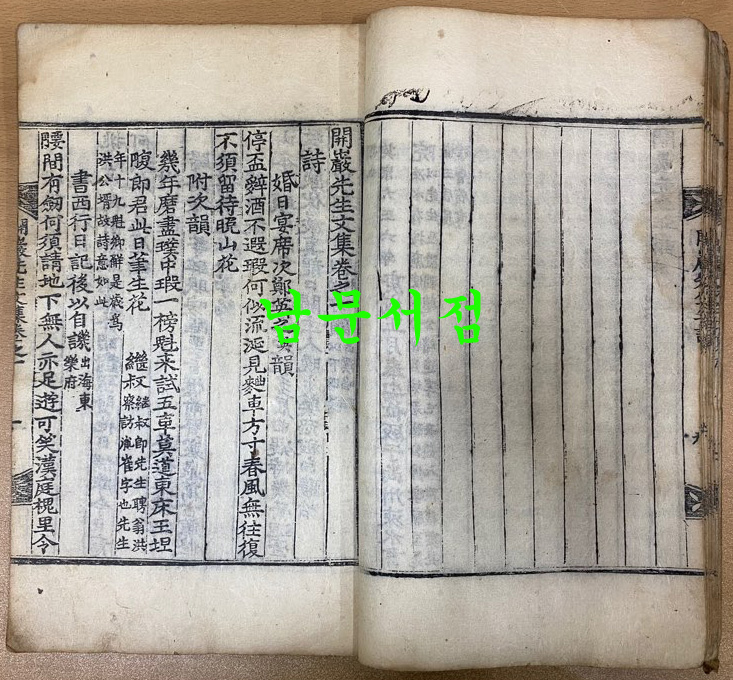 開巖先生文集卷之
詩
婚日宴席次鄭韻
停盃辤酒不遐瑕何似流涎見麯車方寸春風無往復
不須留待晚山花
附次韻
幾年磨盡璞中瑕一榜魁来試五車莫道東床王坦
腹郎君此日筆生花 繼叔
繼叔即先生聘翁洪
察訪字也先生
年十九魁鄉解是歲爲
洪公壻故詩意如此
書西行日記後以自譏
出海東
樂府
腰間有劒何須請地下無人亦足遊可笑漢庭槐里令
開巖先生文集卷之一
一
남문서점